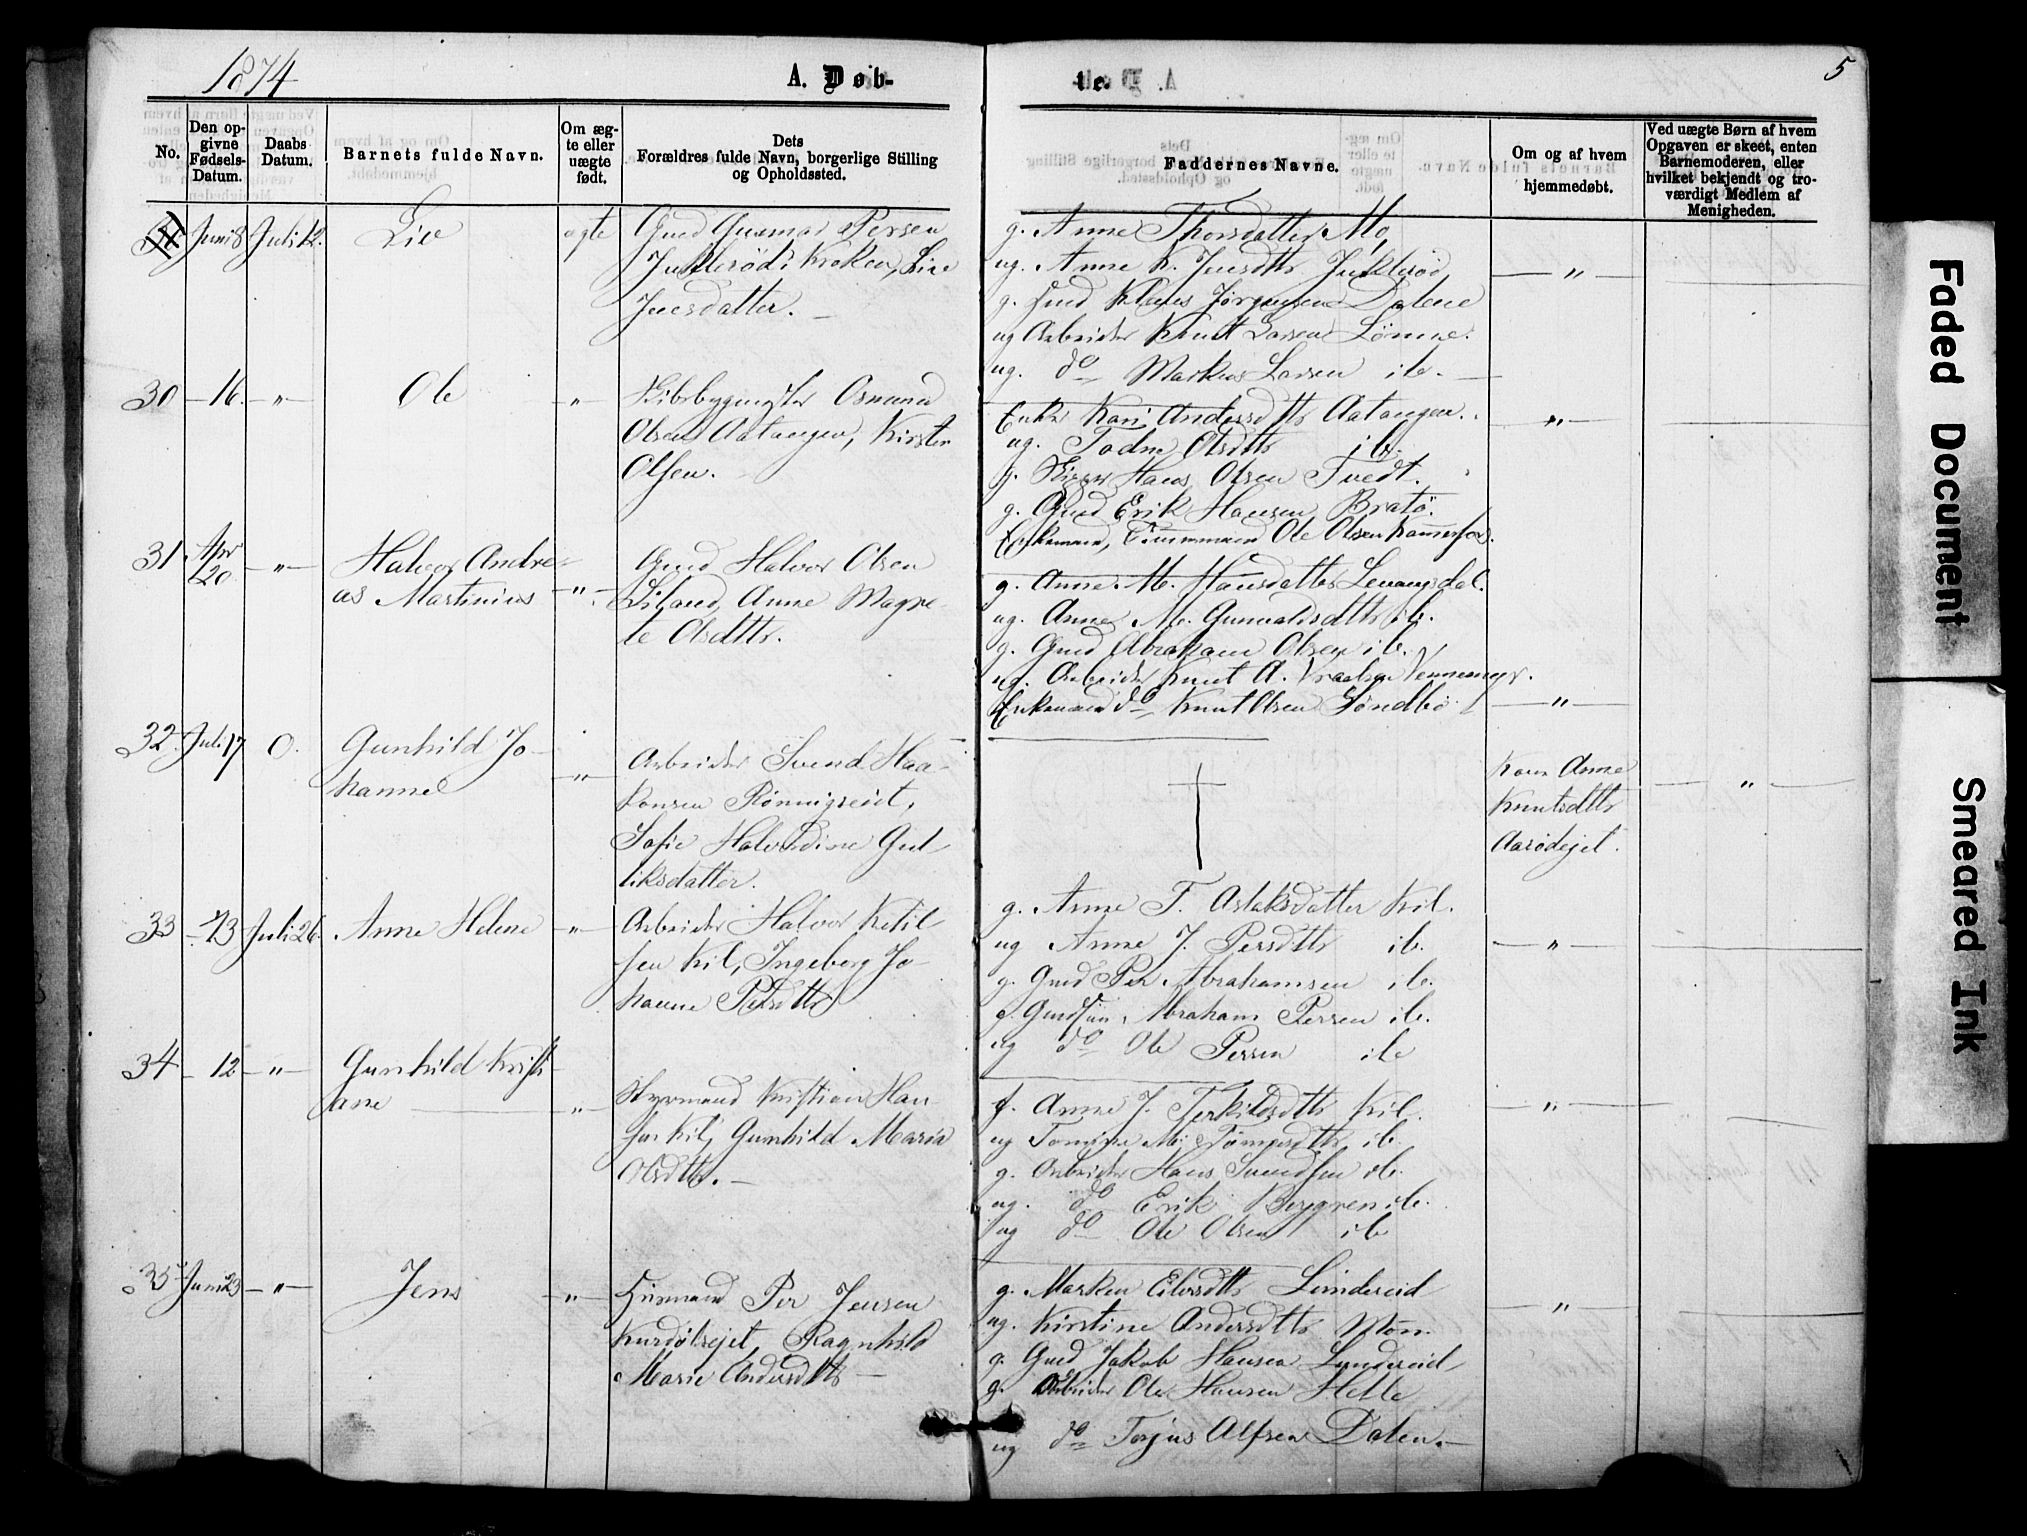 1874
A. Døb-
te.
5
No.
Den op-
givne
Fødsels-
Datum.
Daabs
Datum.
Barnets fulde Navn.
Om æg-
te eller
uægte
født.
Dets
Forældres fulde Navn, borgerlige Stilling
og Opholdssted.
Faddernes Navne.
Om og af hvem
hjemmedøbt.
Ved uægte Børn af hvem
Opgaven er skeet, enten
Barnemoderen, eller
hvilket bekjendt og tro-
værdigt Medlem af
Menigheden.
Juni 8 Juli 12. Liv ægte
Gmd Gunnar Persen
Juklerød i Kroken, Live
Jensdatter. —
g. Anne Thorsdatter Mo,
ug. Anne K. Jensdtr Juklerød — " —
g. Gmd Klaus Jørgensen Dalene
ug Arbeider Knut Larsen Lønne.
ug. do Markus Larsen ib. —
30 — 16. — " — Ole — " —
Skibsbygmester Osmund
Olsen Aatangen, Kirsten
Olsen. —
Enke Kari Andersdtr Aatangen. " —
ug. Olsdtr ib.
g. Hans Olsen Tvedt.
g. Gmd Erik Hansen Bratø.
Enkemand, Tømmermand Ole Olsen
31 Apr 20 — " — Halvor Andre-
as Martinius — " —
Gmd Halvor Olsen
Anne Magre-
te Olsdtr.
g. Anne M. Hansdatter Levangsdal.
ug. Anne M. Gunvaldsdtr ib.
g. Gmd Abraham Olsen ib.
ug. Arbeider Knut A. Vraalsen
Enkemand do Knut Olsen Søndbø — " —
32 Juli 17 0. Gunhild Jo-
hanne — " —
Arbeider Svend Haa-
konsen
Sofie Halvordine Gul-
liksdatter.
Anne
Knutsdtr
Aarødejet.
— " —
33 — 13 Juli 26. Anne Helene — " —
Arbeider Halvor Ketil-
sen Kil, Ingeborg Jo-
hanne Persdtr
g. Anne T. Aslaksdatter Kil.
ug Anne J. Persdtr ib. — " —
g. Gmd Per Abrahamsen ib.
g. Abraham Persen ib.
ug do Ole Persen ib
34 — 12 — " — Gunhild Kristi-
ane — " —
Styrmand Kristian Han-
sen Kil, Gunhild Marie
Olsdtr. —
f. Anne J. Terkildsdtr Kil. — " —
ug Tomine M. ib.
g. Arbeider Hans Svendsen ib.
ug. do Erik Berggren ib.
ug do Ole Olsen ib
35 Juni 23 — " — Jens — " —
Husmand Per Jensen
Ragnhild
Marie Andersdtr —
g. Marken Eilersdtr Lundereid — " —
ug. Kirstine Andersdtr Møn.
g. Gmd Jakob Hansen Lundereid
g. Arbeider Ole Hansen Helle
ug do Torjus Alfsen Dalen. —
Faded Document
Smeared Ink